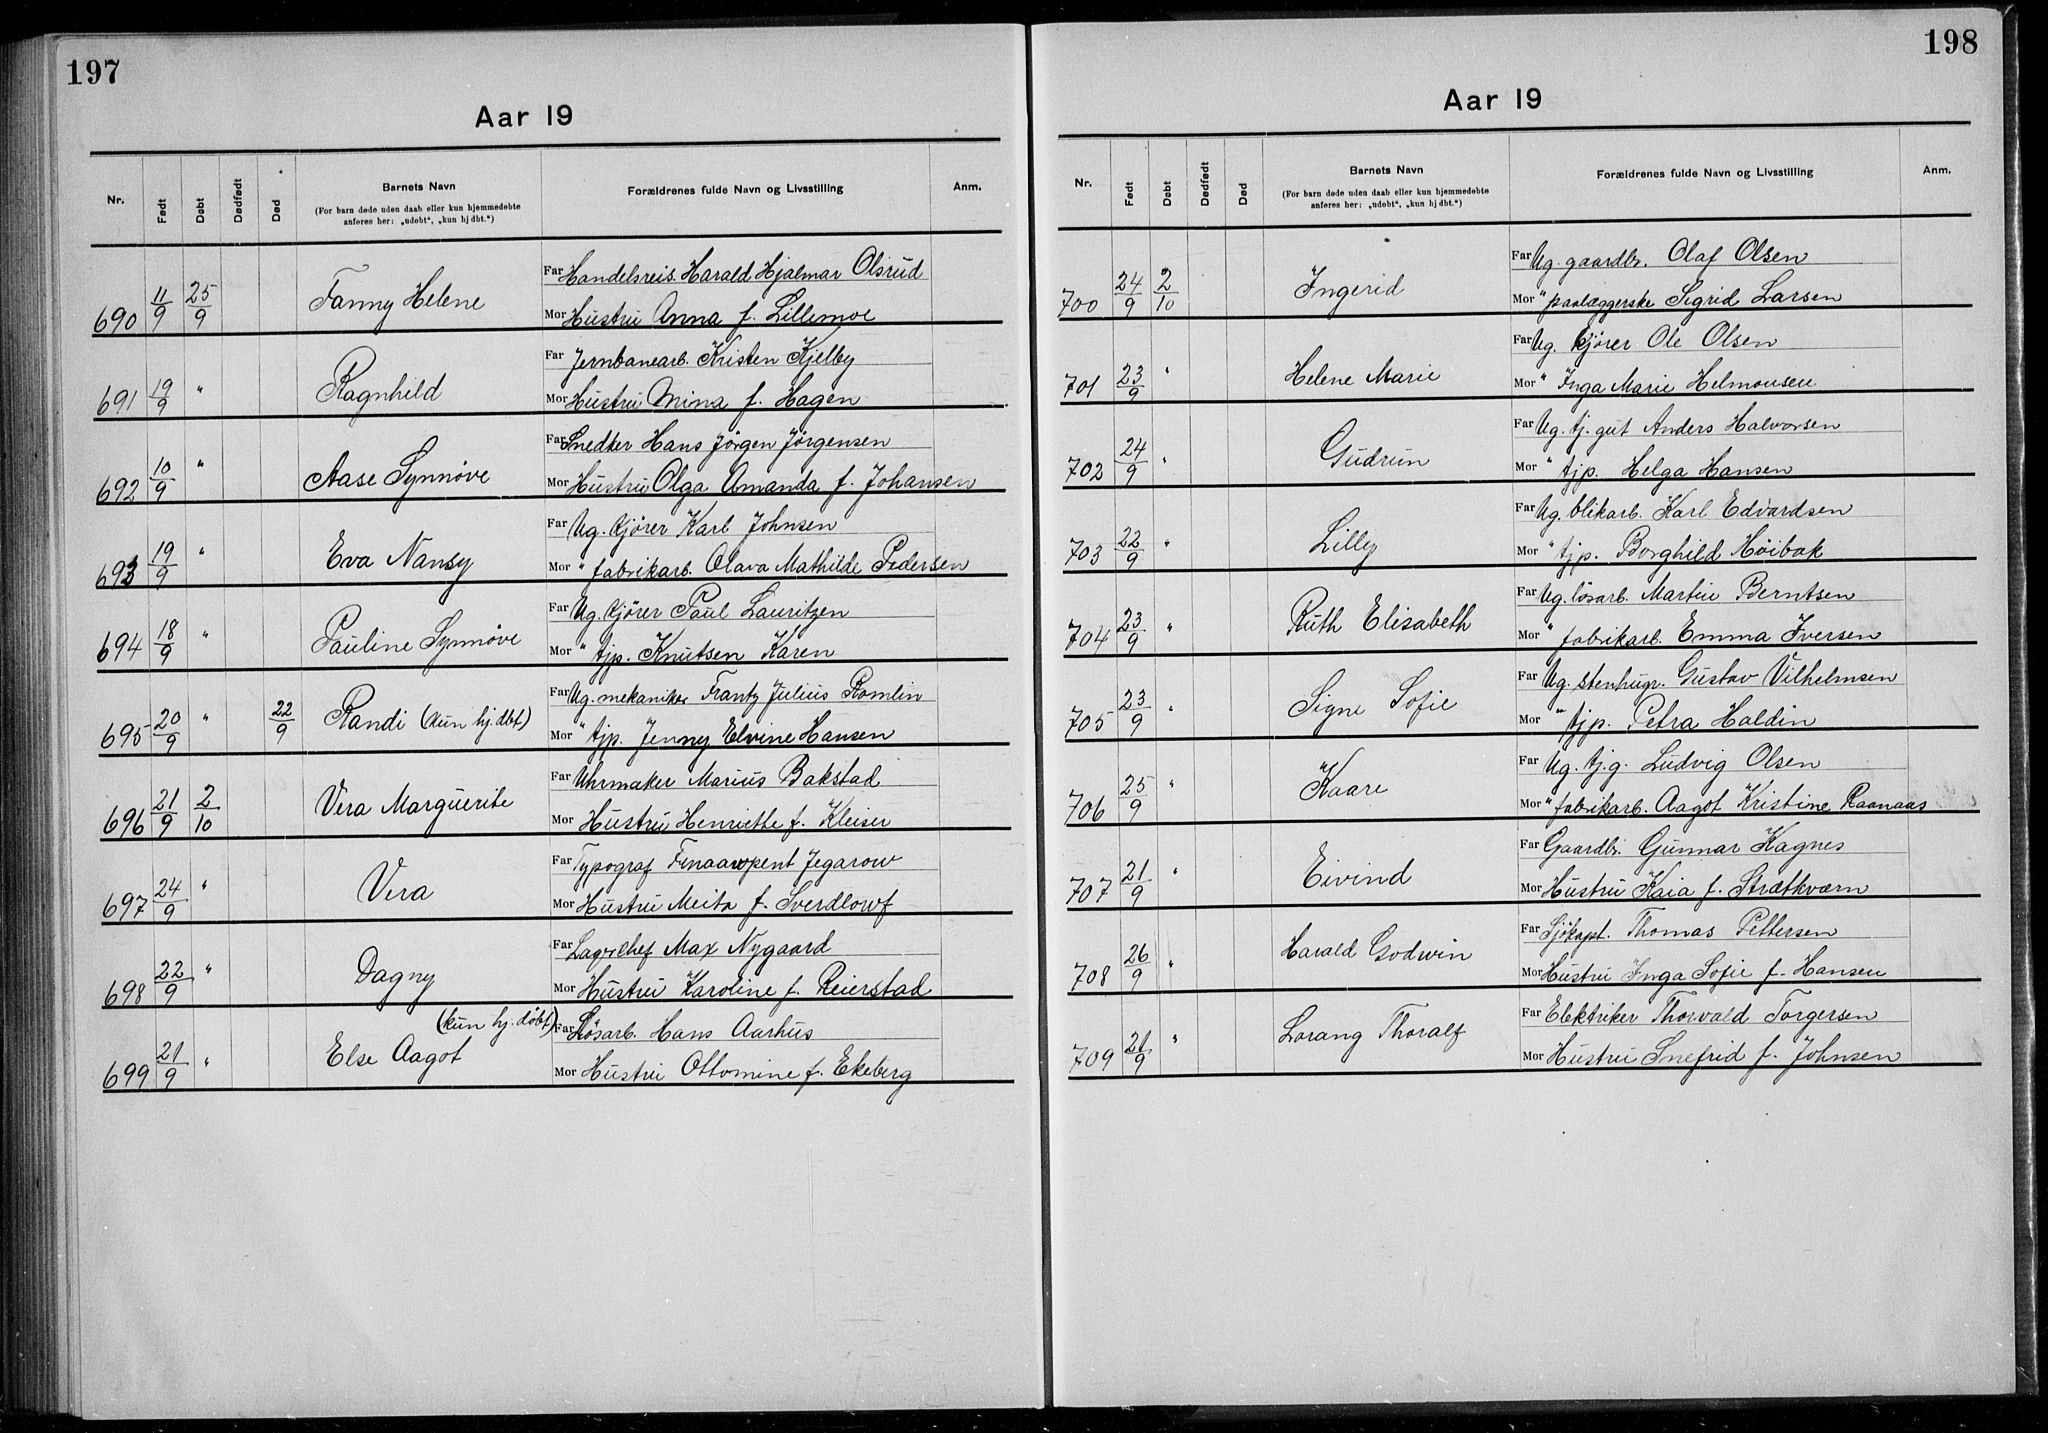 197
Aar 19
Nr. Født Døbt Dødfødt Død Barnets Navn Forældrenes fulde Navn og Livsstilling Anm.
(For barn døde uden daab eller kun hjemmedøbte
anføres her: „udøbt“, „kun hj dbt.“)
Far Handelsreis. Harald Hjalmar Olsrud
690 11/9 25/9 Fanny Helene
Mor Hustru Anna f. Lillemoe
Far Jernbanearb. Kristen Kjelby
691 19/9 " Ragnhild
Mor Hustru Mina f. Hagen
Far Snedker Hans Jörgen Jörgensen
692 10/9 " Aase Synnøve
Mor Hustru Olga Amanda f. Johansen
Far Ug. kjører Karl Johnsen
693 19/9 " Eva Nansy
Mor " fabrikarb. Olava Mathilde Pedersen
Far Ug. kjører Paul Lauritzen
694 18/9 " Pauline Synnøve
Mor " tjp. Knutsen Karen
Far Ug. mekaniker Frantz Julius Romlin
695 20/9 " 22/9 Randi (kun hj. dbt)
Mor " tjp. Jenny Elvine Hansen
Far Uhrmaker Marius Bakstad
696 21/9 2/10 Vera Marguerite
Mor Hustru Henriette f. Kleiser
Far Typograf Jegarow
697 24/9 " Vera
Mor Hustru Meita f. Sverdlowf
Far Lagerchef Max Nygaard
698 22/9 " Dagny
Mor Hustru Karoline f. Reierstad
(kun hj. døbt) Far Løsarb. Hans Aarhus
699 21/9 " Else Aagot
Mor Hustru Ottomine f. Ekeberg
198
Aar 19
Nr. Født Døbt Dødfødt Død Barnets Navn Forældrenes fulde Navn og Livsstilling Anm.
(For barn døde uden daab eller kun hjemmedøbte
anføres her: „udøbt“, „kun hj dbt.“)
Far Ug. gaardbr. Olaf Olsen
700 24/9 2/10 Ingerid
Mor " paalæggerske Sigrid Larsen
Far Ug. kjører Ole Olsen
701 23/9 " Helene Marie
Mor " Inga Marie Helmonsen
Far Ug. tj. gut Anders Halvorsen
702 24/9 " Gudrun
Mor " tjp. Helga Hansen
Far Ug. blikarb. Karl Edvardsen
703 22/9 " Lilly
Mor " tjp. Borghild Höibak
Far Ug. løsarb. Martin Berntsen
704 23/9 " Ruth Elisabeth
Mor " fabrikarb. Emma Iversen
Far Ug. stenhugr. Gustav Vilhelmsen
705 23/9 " Signe Sofie
Mor " tjp. Petra Haldin
Far Ug. tj.g. Ludvig Olsen
706 25/9 " Kaare
Mor " fabrikarb. Aagot Kristine Raanaas
Far Gaardbr. Gunnar Kagnes
707 21/9 " Eivind
Mor Hustru Kaia f. Strætkværn
Far Sjökapt. Thomas Pettersen
708 26/9 " Harald Godwin
Mor Hustru Inga Sofie f. Hansen
Far Elektriker Thorvald Torgersen
709 21/9 " Lorang Thoralf
Mor Hustru Snefrid f. Johnsen